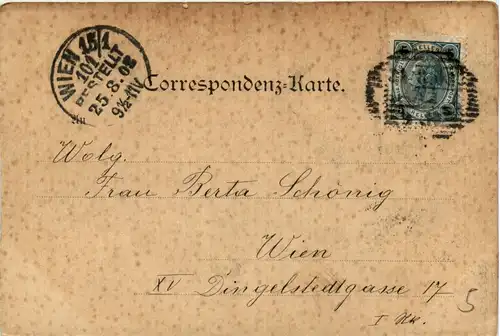 WIEN 15/1
101
BESTELLT
25.8.02
9½-11V
Correspondenz-Karte.
An
Wolg.
Frau Berta Schönig
Wien
XV Dingelstedtgasse 17
I Stk.
5